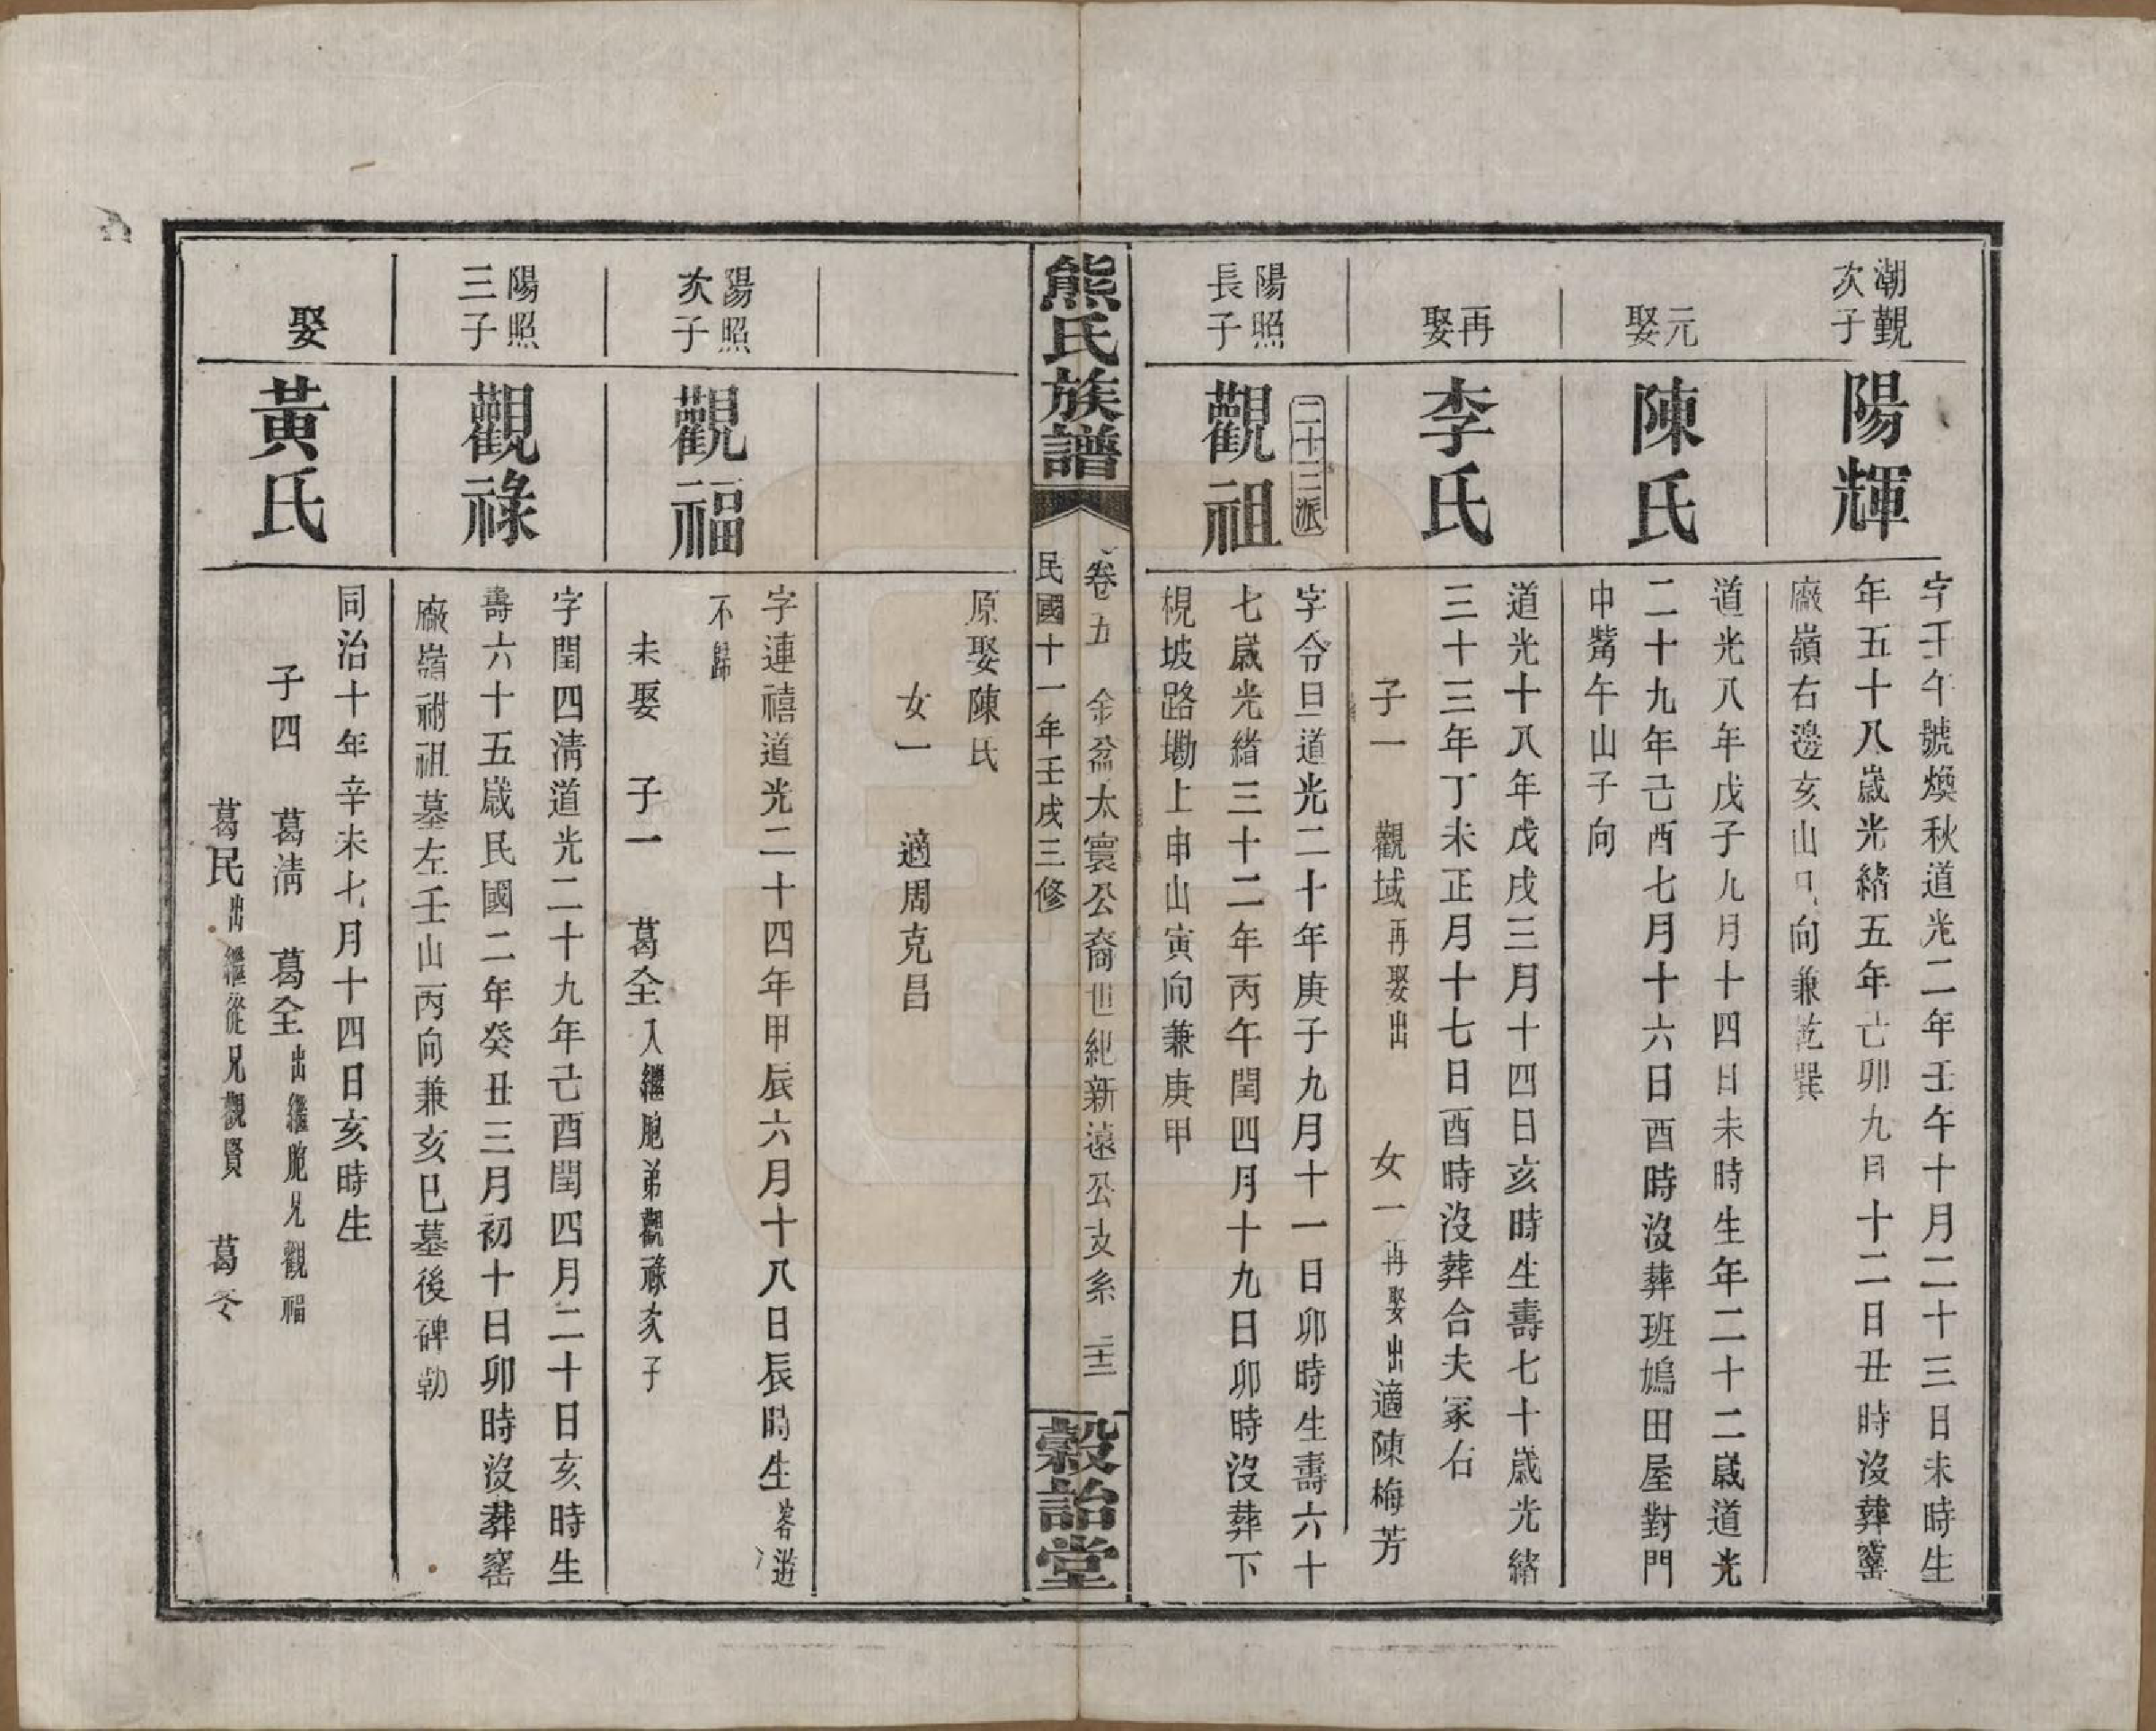 潮觀次子
陽輝
字壬午號煥秋道光二年壬午十月二十三日未時生
年五十八歲光緒五年己卯九月十二日丑時沒葬窰
廠嶺右邊亥山巳向兼乾巽
元娶
陳氏
道光八年戊子九月十四日未時生年二十二歲道光
二十九年己酉七月十六日酉時沒葬班鳩田屋對門
中觜午山子向
再娶
李氏
道光十八年戊戌三月十四日亥時生壽七十歲光緒
三十三年丁未正月十七日酉時沒葬合夫冢右
子一 觀域再娶出 女一再娶出適陳梅芳
二十三派
陽照長子
觀祖
字令旦道光二十年庚子九月十一日卯時生壽六十
七歲光緒三十二年丙午閏四月十九日卯時沒葬下
梘坡路墈上申山寅向兼庚甲
熊氏族譜
卷五 金盆太寰公裔世紀新遠公支系 二十二
民國十一年壬戌三修
穀詒堂
原娶陳氏
女一 適周克昌
陽照次子
觀福
字連禧道光二十四年甲辰六月十八日辰時生客遊
不歸
未娶 子一 葛全入繼胞弟觀祿次子
陽照三子
觀祿
字閏四清道光二十九年己酉閏四月二十日亥時生
壽六十五歲民國二年癸丑三月初十日卯時沒葬窰
廠嶺祔祖墓左壬山丙向兼亥巳墓後碑勒
娶
黃氏
同治十年辛未七月十四日亥時生
子四 葛清 葛全出繼胞兄觀福
葛民出繼從兄觀賢 葛冬